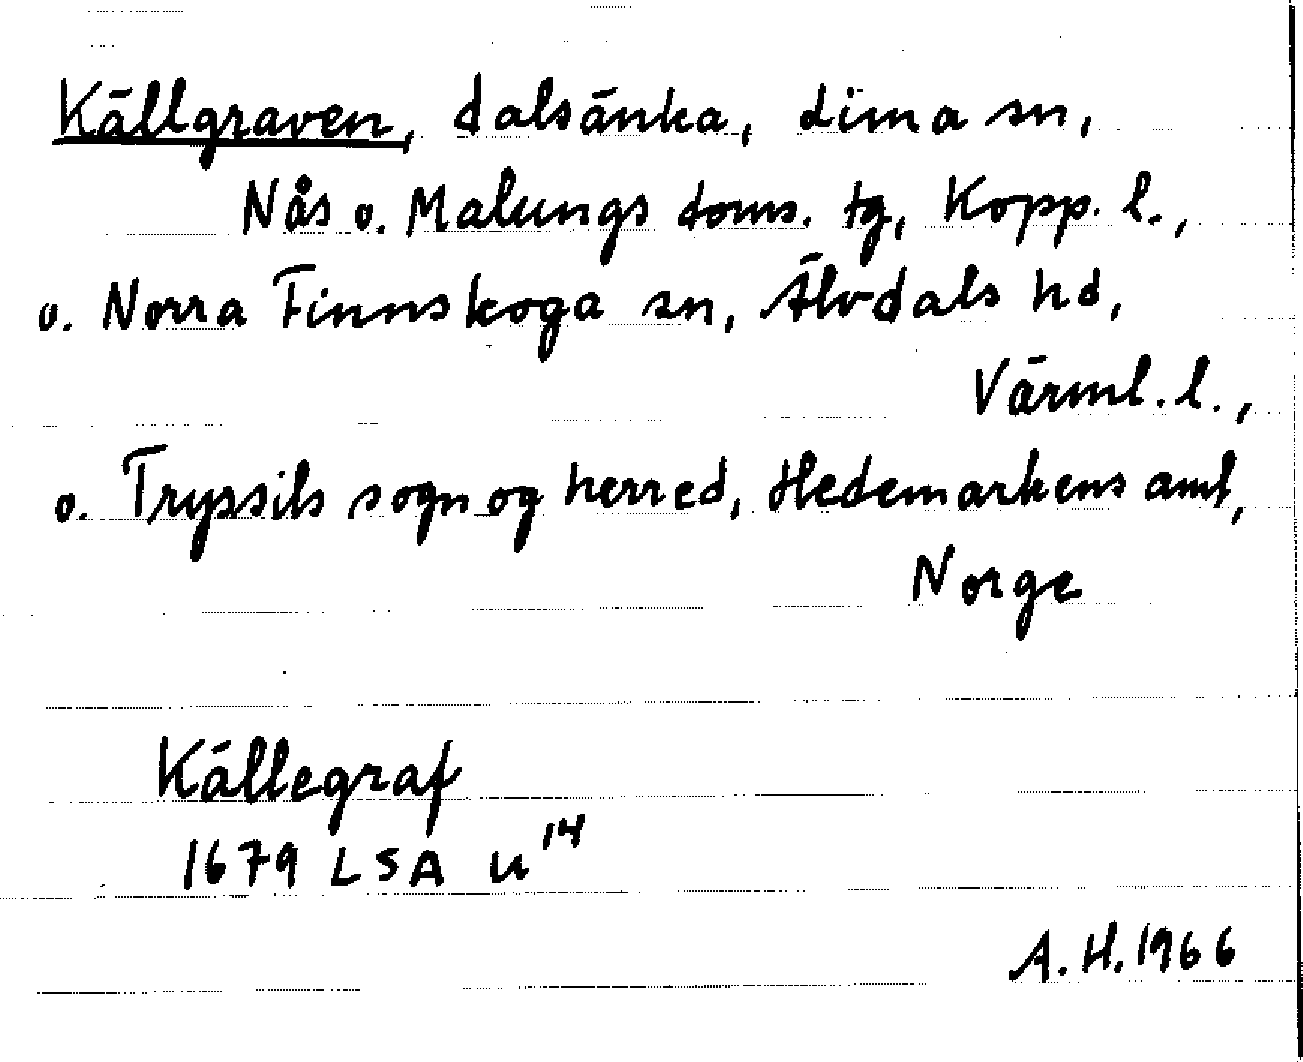 Källgraven, dalsänka, Lima sn,
Nås o. Malungs doms. tg, Kopp. l.,
o. Norra Finnskoga sn, Älvdals hd,
Värml. l.,
o. Tryssils sogn og herred, Hedemarkens amt,
Norge
Källegraf
1679 LSA U 14
A. H. 1966